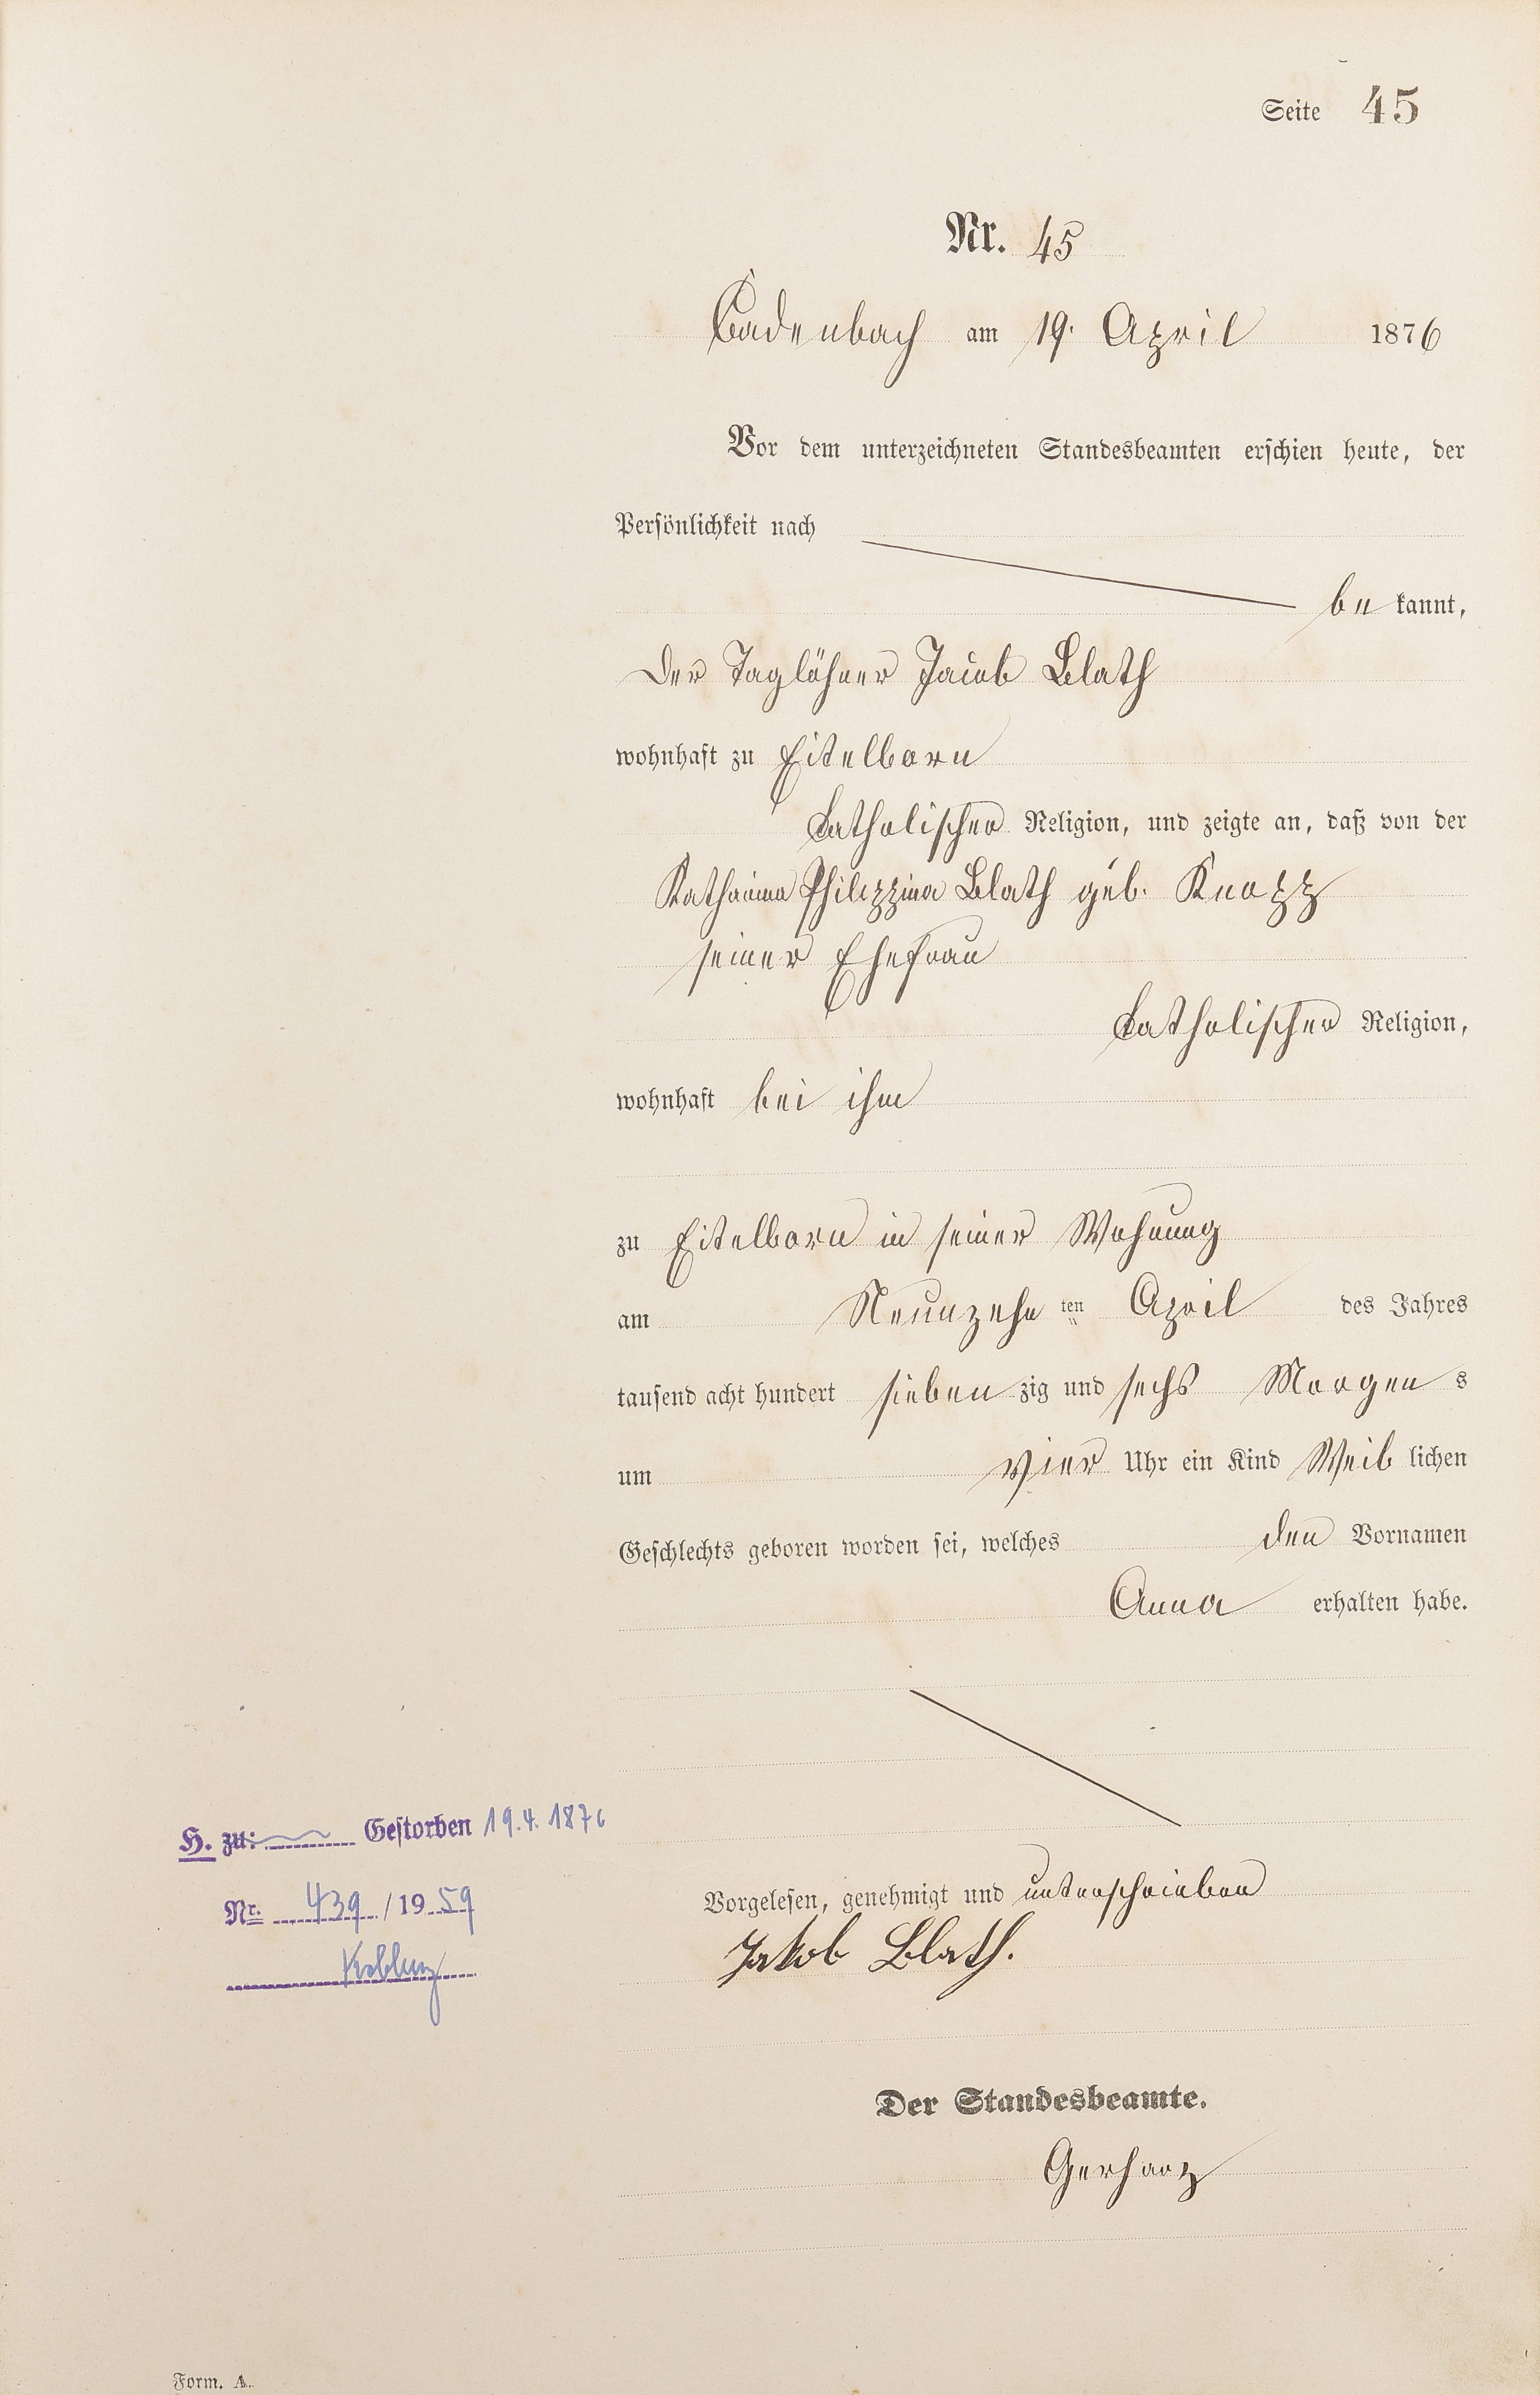 Seite 45
Nr. 45
Cadenbach am 19. April 1876
Vor dem unterzeichneten Standesbeamten erschien heute, der
Persönlichkeit nach
be kannt,
der Taglöhner Jacob Blath
wohnhaft zu Eitelborn
katholischer Religion, und zeigte an, daß von der
Katharina Philippina Blath geb. Knopp
seiner Ehefrau
katholischer Religion,
wohnhaft bei ihm
zu Eitelborn in seiner Wohnung
am Neunzehn ten April des Jahres
tausend acht hundert sieben zig und sechs Morgen s
um vier Uhr ein Kind Weib lichen
Geschlechts geboren worden sei, welches den Vornamen
Anna erhalten habe.
H. zu: Gestorben 19.4.1876
Nr. 439 / 19 59
Koblenz
Vorgelesen, genehmigt und unterschrieben
Jakob Blath.
Der Standesbeamte.
Gerharz
Form. A.